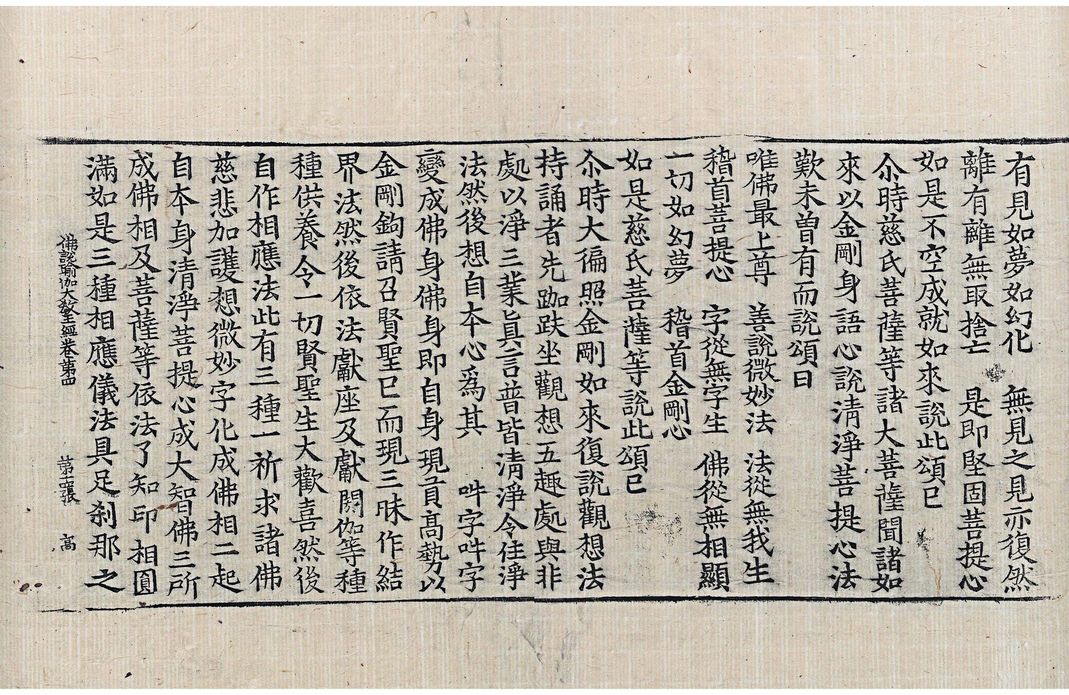 有見如夢如幻化　無見之見亦復然
離有離無取捨亡　是即堅固菩提心
如是不空成就如來說此頌已
尒時慈氏菩薩等諸大菩薩聞諸如
來以金剛身語心說清淨菩提心法
歎未曽有而說頌曰
唯佛最上尊　善說微妙法　法從無我生
稽首菩提心　字從無字生　佛從無相顯
一切如幻夢　稽首金剛心
如是慈氏菩薩等說此頌已
尒時大徧照金剛如來復說觀想法
持誦者先跏趺坐觀想五趣處與非
處以淨三業真言普皆清淨令住淨
法然後想自本心為其　吽字吽字
變成佛身佛身即自身現貢高勢以
金剛鉤請召賢聖已而現三昧作結
界法然後依法獻座及獻閼伽等種
種供養令一切賢聖生大歡喜然後
自作相應法此有三種一祈求諸佛
慈悲加護想微妙字化成佛相二起
自本身清淨菩提心成大智佛三所
成佛相及菩薩等依法了知印相圓
滿如是三種相應儀法具足剎那之
佛說瑜伽大教王經卷第四　第十二張　高